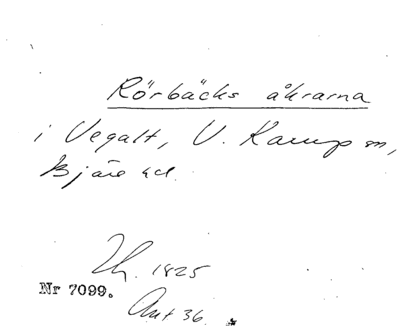 Rörbäcks åkrarna
i Vegalt, V. Karup sn,
Bjäre hd.
Lh. 1825
Nr 7099.
Ant 36